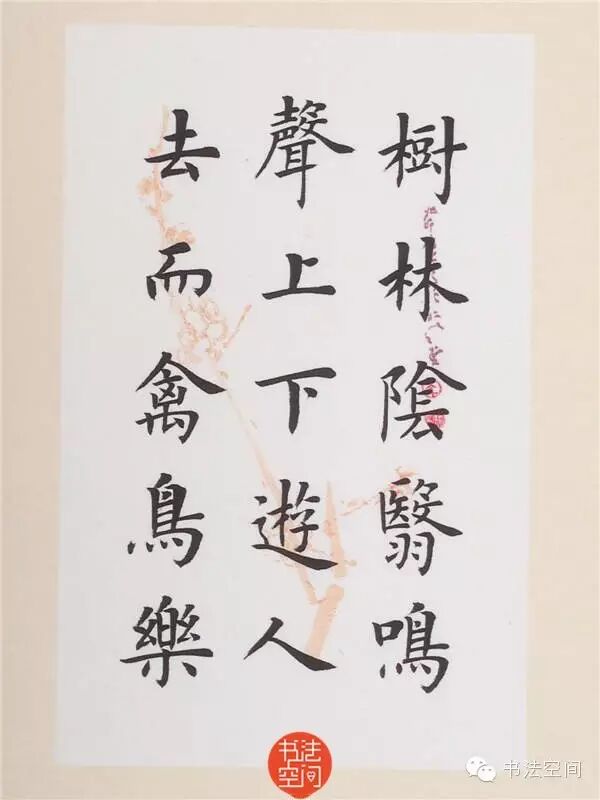 樹林陰翳鳴
聲上下遊人
去而禽鳥樂
书法
空间
书法空间